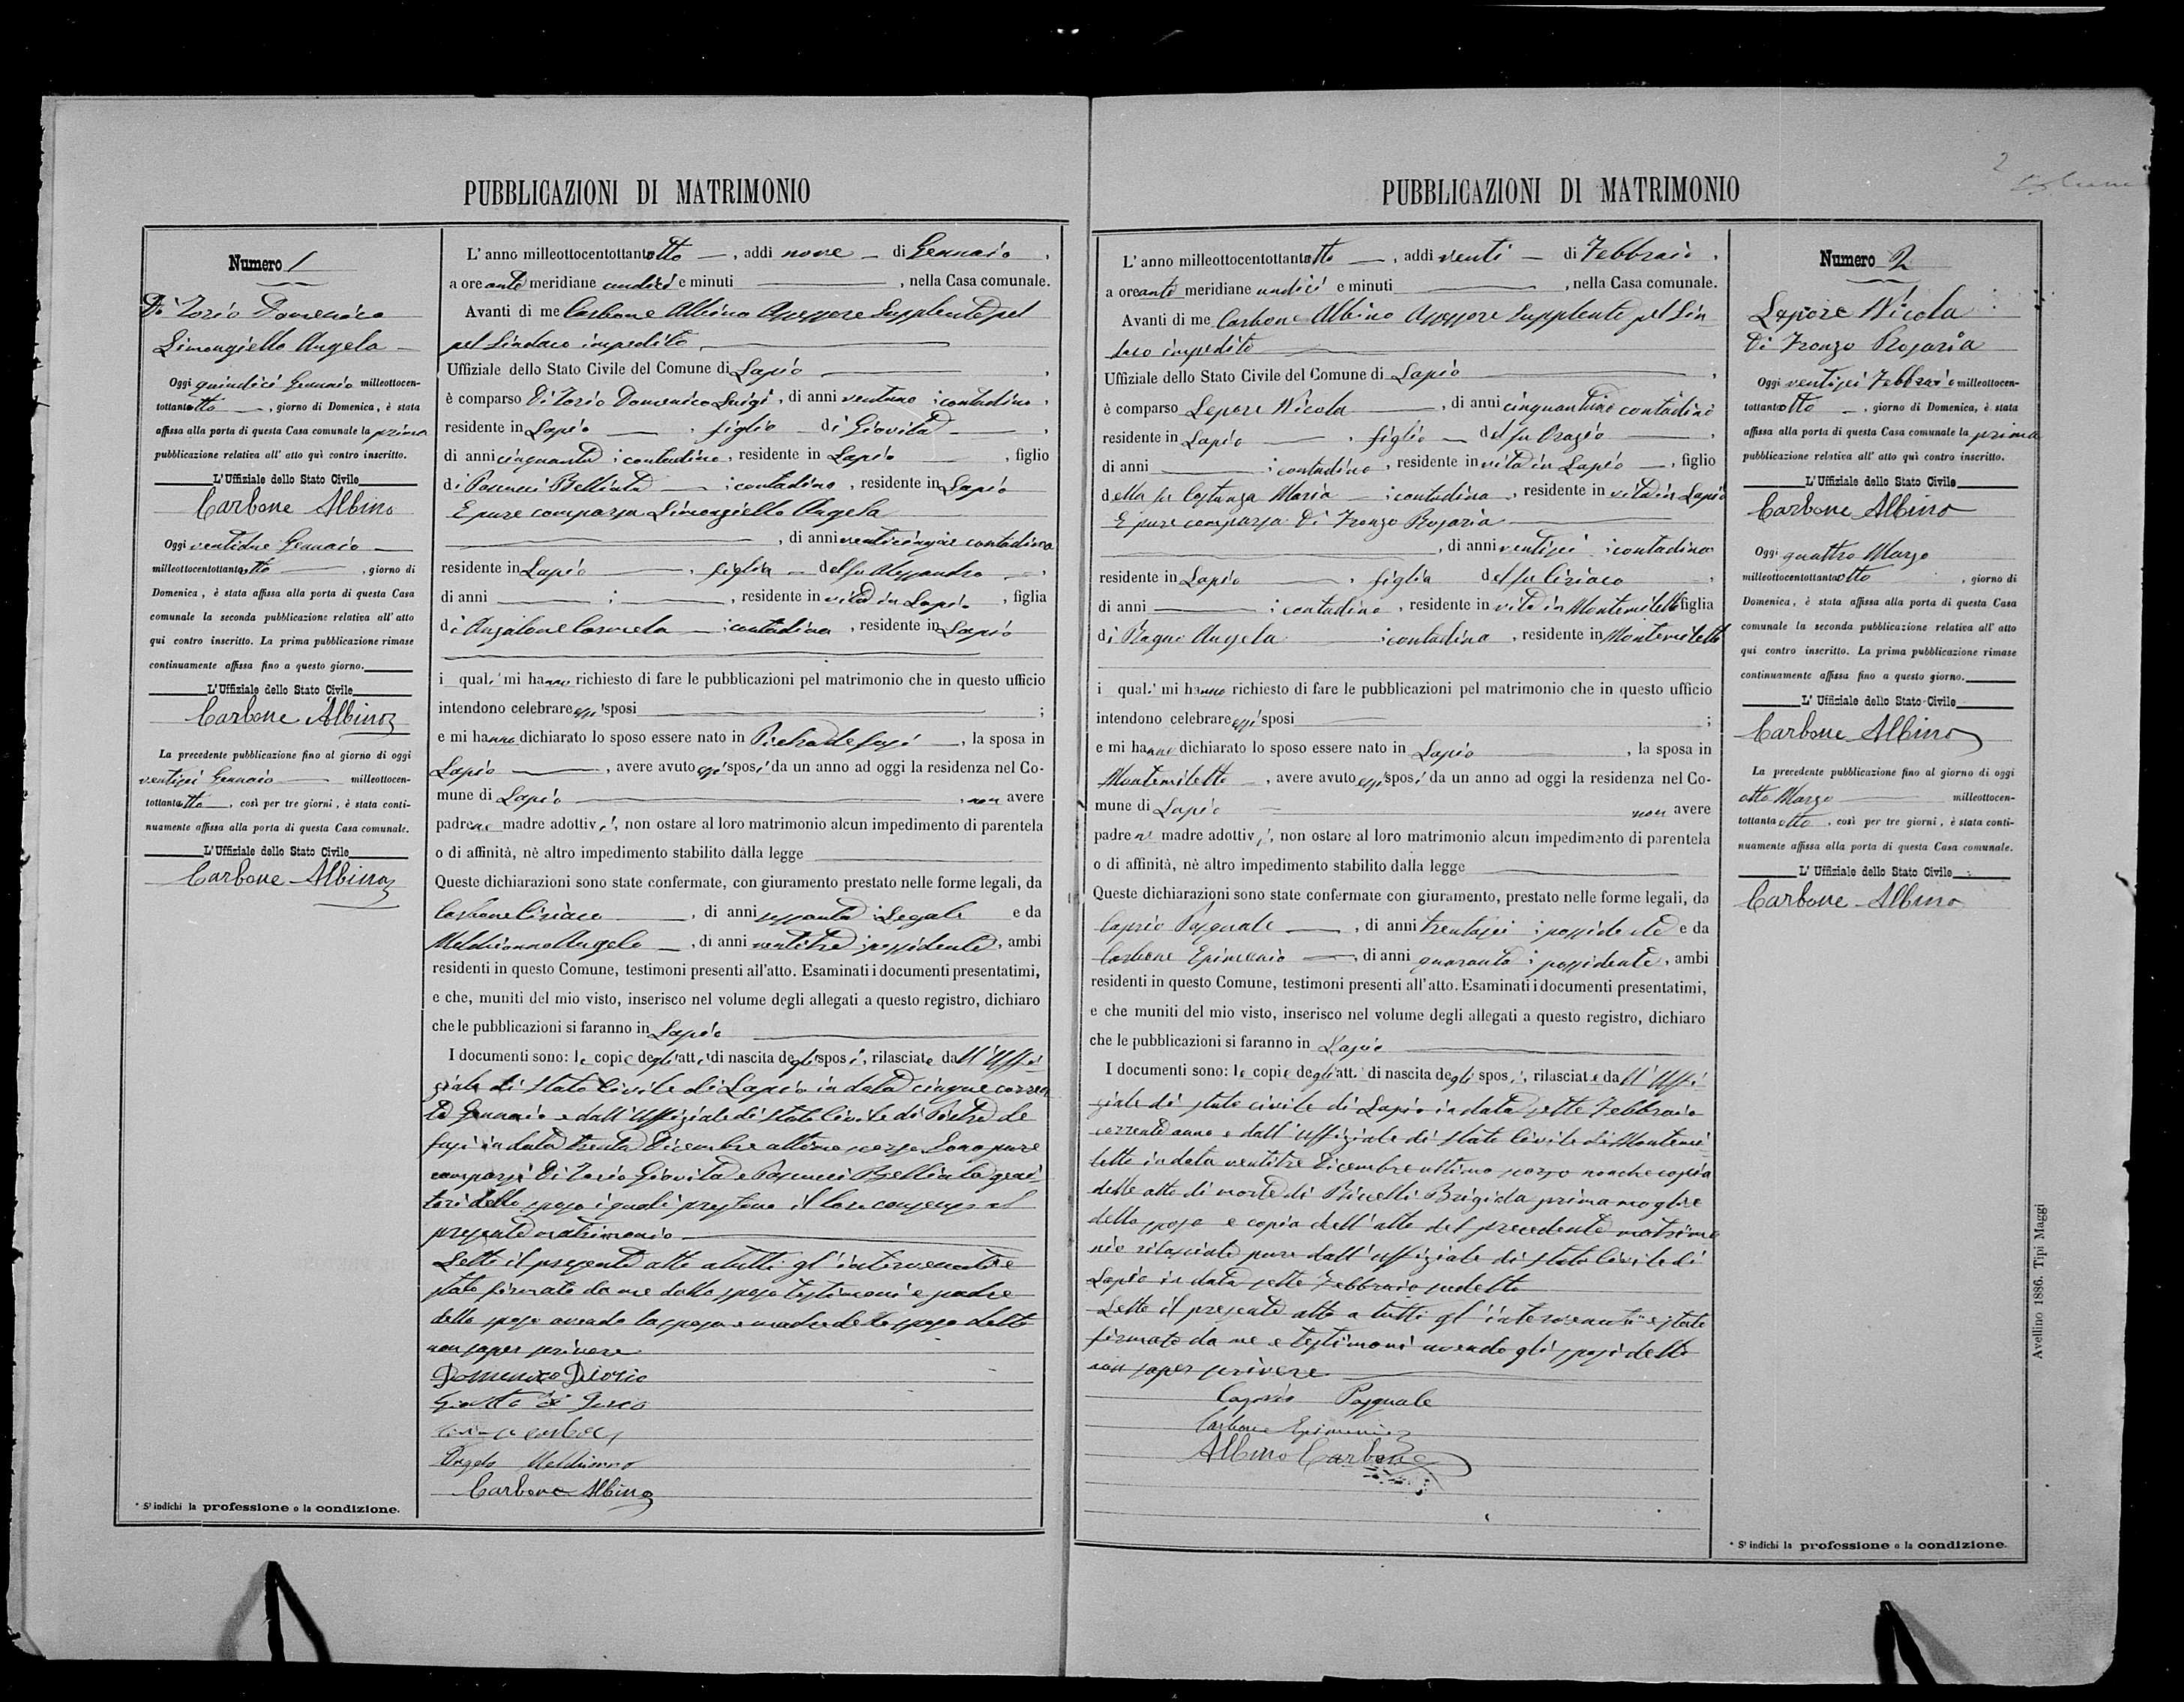 PUBBLICAZIONI DI MATRIMONIO
Numero 1
Di Iorio Domenico
Limongiello Angela
Oggi quindici Gennaio milleottocen-
tottantotto, giorno di Domenica, è stata
affissa alla porta di questa Casa comunale la prima
pubblicazione relativa all' atto quì contro inscritto.
L'Uffiziale dello Stato Civile
Carbone Albino
Oggi ventidue Gennaio
milleottocentottantotto, giorno di
Domenica, è stata affissa alla porta di questa Casa
comunale la seconda pubblicazione relativa all' atto
qui contro inscritto. La prima pubblicazione rimase
continuamente affissa fino a questo giorno.
L'Uffiziale dello Stato Civile
Carbone Albino
La precedente pubblicazione fino al giorno di oggi
ventisei Gennaio milleottocen-
tottantotto, così per tre giorni, è stata conti-
nuamente affissa alla porta di questa Casa comunale.
L'Uffiziale dello Stato Civile
Carbone Albino
* Si indichi la professione o la condizione.
L' anno milleottocentottantotto, addi nove di Gennaio,
a ore anti meridiane undici e minuti, nella Casa comunale.
Avanti di me Carbone Albino Assessore Supplente pel
pel Sindaco impedito
Uffiziale dello Stato Civile del Comune di Lapio,
è comparso Di Iorio Domenico Luigi, di anni ventuno contadino,
residente in Lapio, figlio di Giovita,
di anni cinquanta contadino, residente in Lapio, figlio
di Pascucci Belliata contadina, residente in Lapio
E pure comparsa Limongiello Angela
, di anni venticinque contadina
residente in Lapio, figlia del fu Alessandro,
di anni ; , residente in vita in Lapio, figlia
di Anzalone Carmela contadina, residente in Lapio
i quali mi hanno richiesto di fare le pubblicazioni pel matrimonio che in questo ufficio
intendono celebrare essi sposi ;
e mi hanno dichiarato lo sposo essere nato in Pietradefusi, la sposa in
Lapio, avere avuto essi sposi da un anno ad oggi la residenza nel Co-
mune di Lapio, non avere
padre ne madre adottivi, non ostare al loro matrimonio alcun impedimento di parentela
o di affinità, nè altro impedimento stabilito dalla legge
Queste dichiarazioni sono state confermate, con giuramento prestato nelle forme legali, da
Carbone Ciriaco, di anni sessanta Legale e da
Meldionno Angelo, di anni ventitre possidente, ambi
residenti in questo Comune, testimoni presenti all'atto. Esaminati i documenti presentatimi,
e che, muniti del mio visto, inserisco nel volume degli allegati a questo registro, dichiaro
che le pubblicazioni si faranno in Lapio
I documenti sono: le copie degli atti di nascita degli sposi, rilasciate dall'Uffi-
ziale di Stato Civile di Lapio in data cinque corren
te Gennaio e dall'Uffiziale di Stato Civile di Pietra de
fusi in data trenta Dicembre ultimo scorso Sono pure
comparsi Di Iorio Giovita e Pascucci Belliata geni-
tori dello sposo i quali prestano il loro consenso al
presente matrimonio
Letto il presente atto a tutti gl'intervenuti e
stato firmato da me dallo sposo testimoni e padre
dello sposo avendo la sposa e madre dello sposo detto
non saper scrivere
Domenico Diiorio
Giovita di Iorio
Angelo Meldionno
Carbone Albino
PUBBLICAZIONI DI MATRIMONIO
2
L' anno milleottocentottantotto, addi venti di Febbraio,
a ore anti meridiane undici e minuti, nella Casa comunale.
Avanti di me Carbone Albino Assessore Supplente pel Sin
daco impedito
Uffiziale dello Stato Civile del Comune di Lapio,
è comparso Lepore Nicola, di anni cinquantuno contadino
residente in Lapio, figlio del fu Orazio,
di anni ; contadino, residente in vita in Lapio, figlio
della fu Costanza Maria contadina, residente in vita in Lapio
E pure comparsa Di Fronzo Rosaria
, di anni ventisei contadina
residente in Lapio, figlia del fu Ciriaco,
di anni ; contadino, residente in vita in Montemiletto figlia
di Ragno Angela contadina, residente in Montemiletto
i quali mi hanno richiesto di fare le pubblicazioni pel matrimonio che in questo ufficio
intendono celebrare essi sposi ;
e mi hanno dichiarato lo sposo essere nato in Lapio, la sposa in
Montemiletto, avere avuto essi sposi da un anno ad oggi la residenza nel Co-
mune di Lapio non avere
padre ne madre adottivi, non ostare al loro matrimonio alcun impedimento di parentela
o di affinità, nè altro impedimento stabilito dalla legge
Queste dichiarazioni sono state confermate con giuramento, prestato nelle forme legali, da
Caprio Pasquale, di anni trentasei possidente e da
Carbone Epimenio, di anni quaranta possidente, ambi
residenti in questo Comune, testimoni presenti all' atto. Esaminati i documenti presentatimi,
e che muniti del mio visto, inserisco nel volume degli allegati a questo registro, dichiaro
che le pubblicazioni si faranno in Lapio
I documenti sono: le copie degli atti di nascita degli sposi, rilasciate dall'Uffi-
ziale di stato civile di Lapio in data sette Febbraio
corrente anno e dall'uffiziale di Stato Civile di Montemi
letto in data ventitre Dicembre ultimo scorso nonche copia
dello atto di morte di Brigida prima moglie
dello sposo e copia dell'atto del precedente matrimo
nio rilasciate pure dall'uffiziale di Stato Civile di
Lapio in data sette Febbraio sudetto
Letto il presente atto a tutti gl'intervenuti è stato
firmato da me e testimoni avendo gli sposi detto
non saper scrivere
Caprio Pasquale
Carbone Epimenio
Albino Carbone
Numero 2
Lepore Nicola
Di Fronzo Rosaria
Oggi ventisei Febbraio milleottocen-
tottantotto, giorno di Domenica, è stata
affissa alla porta di questa Casa comunale la prima
pubblicazione relativa all' atto quì contro inscritto.
L' Uffiziale dello Stato Civile
Carbone Albino
Oggi quattro Marzo
milleottocentottantaotto, giorno di
Domenica, è stata affissa alla porta di questa Casa
comunale la seconda pubblicazione relativa all' atto
qui contro inscritto. La prima pubblicazione rimase
continuamente affissa fino a questo giorno.
L' Uffiziale dello Stato Civile
Carbone Albino
La precedente pubblicazione fino al giorno di oggi
otto Marzo milleottocen-
tottantaotto, così per tre giorni, è stata conti-
nuamente affissa alla porta di questa Casa comunale.
L' Uffiziale dello Stato Civile
Carbone Albino
* Si indichi la professione o la condizione.
Avellino 1886. Tipi Maggi